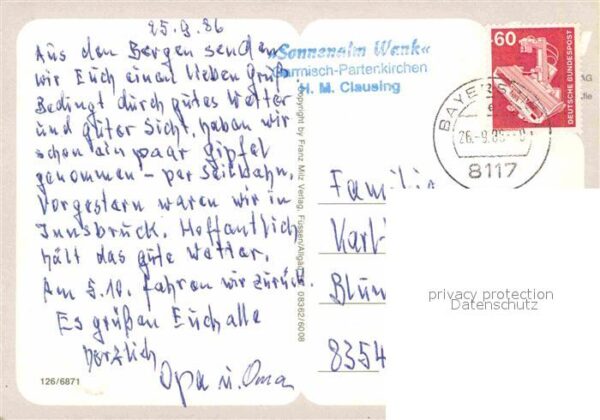 25.9.86
Aus den Bergen senden
wir Euch einen lieben Gruß.
Bedingt durch gutes Wetter
und guter Sicht, haben wir
schon ein paar Gipfel
genommen - per Seilbahn.
Vorgestern waren wir in
Innsbruck. Hoffentlich
hält das gute Wetter.
Am 5.10. fahren wir zurück.
Es grüßen Euch alle
herzlich
Opa u. Oma
126/6871
Copyright by Franz Milz Verlag, Füssen/Allgäu 08362/6008
»Sonnenalm Wank«
Garmisch-Partenkirchen
H. M. Clausing
60
DEUTSCHE BUNDESPOST
26.-9.86
8117
Familie
8354
privacy protection
Datenschutz